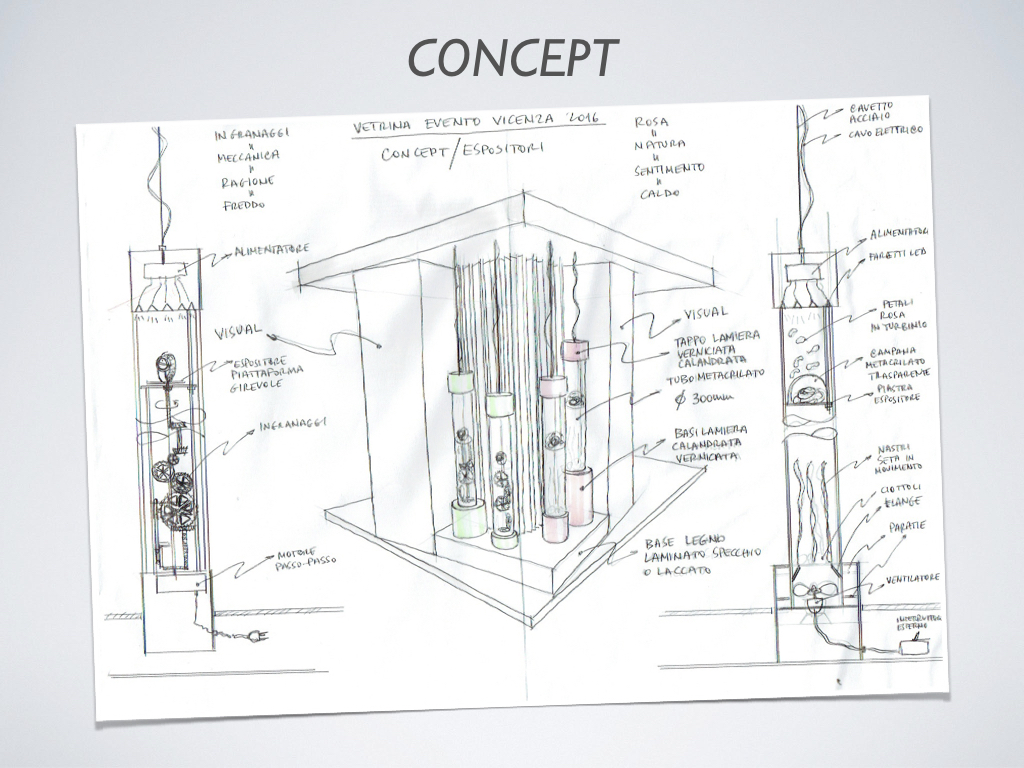 CONCEPT
VETRINA EVENTO VICENZA 2016
CONCEPT/ESPOSITORI
INGRANAGGI
"
MECCANICA
"
RAGIONE
"
FREDDO
ROSA
"
NATURA
"
SENTIMENTO
"
CALDO
ALIMENTATORE
VISUAL
ESPOSITORE
PIATTAFORMA
GIREVOLE
INGRANAGGI
MOTORE
PASSO-PASSO
VISUAL
TAPPO LAMIERA
VERNICIATA
CALANDRATA
TUBO METACRILATO
Ø 300mm
BASI LAMIERA
CALANDRATA
VERNICATA
BASE LEGNO
LAMINATO SPECCHIO
O LACCATO
CAVETTO
ACCIAIO
CAVO ELETTRICO
ALIMENTATORI
FARETTI LED
PETALI
ROSA
IN TURBINIO
CAMPANA
METACRILATO
TRASPARENTE
PIASTRA
ESPOSITORE
NASTRI
SETA IN
MOVIMENTO
CIOTTOLI
FLANGE
PARATIE
VENTILATORE
INTERRUTTORE
ESTERNO